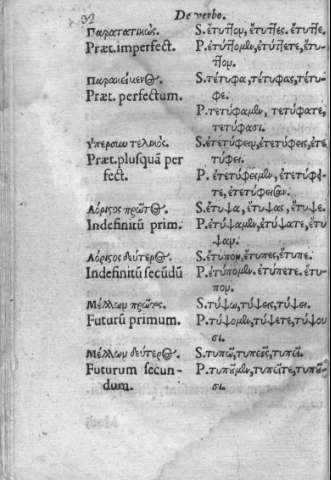 92 De verbo.
Παρατατικὸς. S. ἔτυπτον, ἔτυπτες, ἔτυπτε.
Præt. imperfect. P. ἐτύπτομεν, ἐτύπτετε, ἔτυ-
πτον.
Παρακείμενος. S. τέτυφα, τέτυφας, τέτυ-
Præt. perfectum. φε.
P. τετύφαμεν, τετύφατε,
τετύφασι.
Ὑπερσυντελικὸς. S. ἐτετύφειν, ἐτετύφεις, ἐτε-
Præt. plusquã per τύφει.
fect. P. ἐτετύφειμεν, ἐτετύφει-
τε, ἐτετύφεισαν.
Ἀόριστος πρῶτος. S. ἔτυψα, ἔτυψας, ἔτυψε.
Indefinitũ prim. P. ἐτύψαμεν, ἐτύψατε, ἔτυ-
ψαν.
Ἀόριστος δεύτερος. S. ἔτυπον, ἔτυπες, ἔτυπε.
Indefinitũ secũdũ P. ἐτύπομεν, ἐτύπετε. ἔτυ-
πον.
Μέλλων πρῶτος. S. τύψω, τύψεις, τύψει.
Futurũ primum. P. τύψομεν, τύψετε, τύψου
σι.
Μέλλων δεύτερος. S. τυπῶ, τυπεῖς, τυπεῖ.
Futurum secun- P. τυποῦμεν, τυπεῖτε, τυποῦ-
dum. σι.